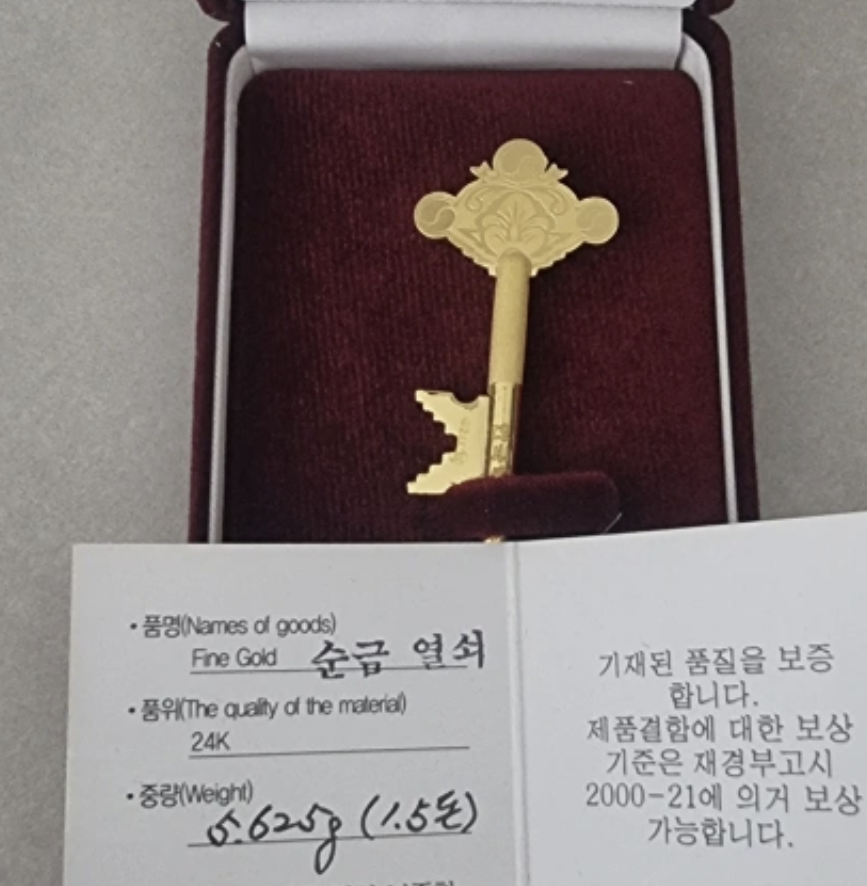 • 품명(Names of goods)
Fine Gold 순금 열쇠
• 품위(The quality of the material)
24K
• 중량(Weight)
5.625g (1.5돈)
기재된 품질을 보증
합니다.
제품결함에 대한 보상
기준은 재경부고시
2000-21에 의거 보상
가능합니다.